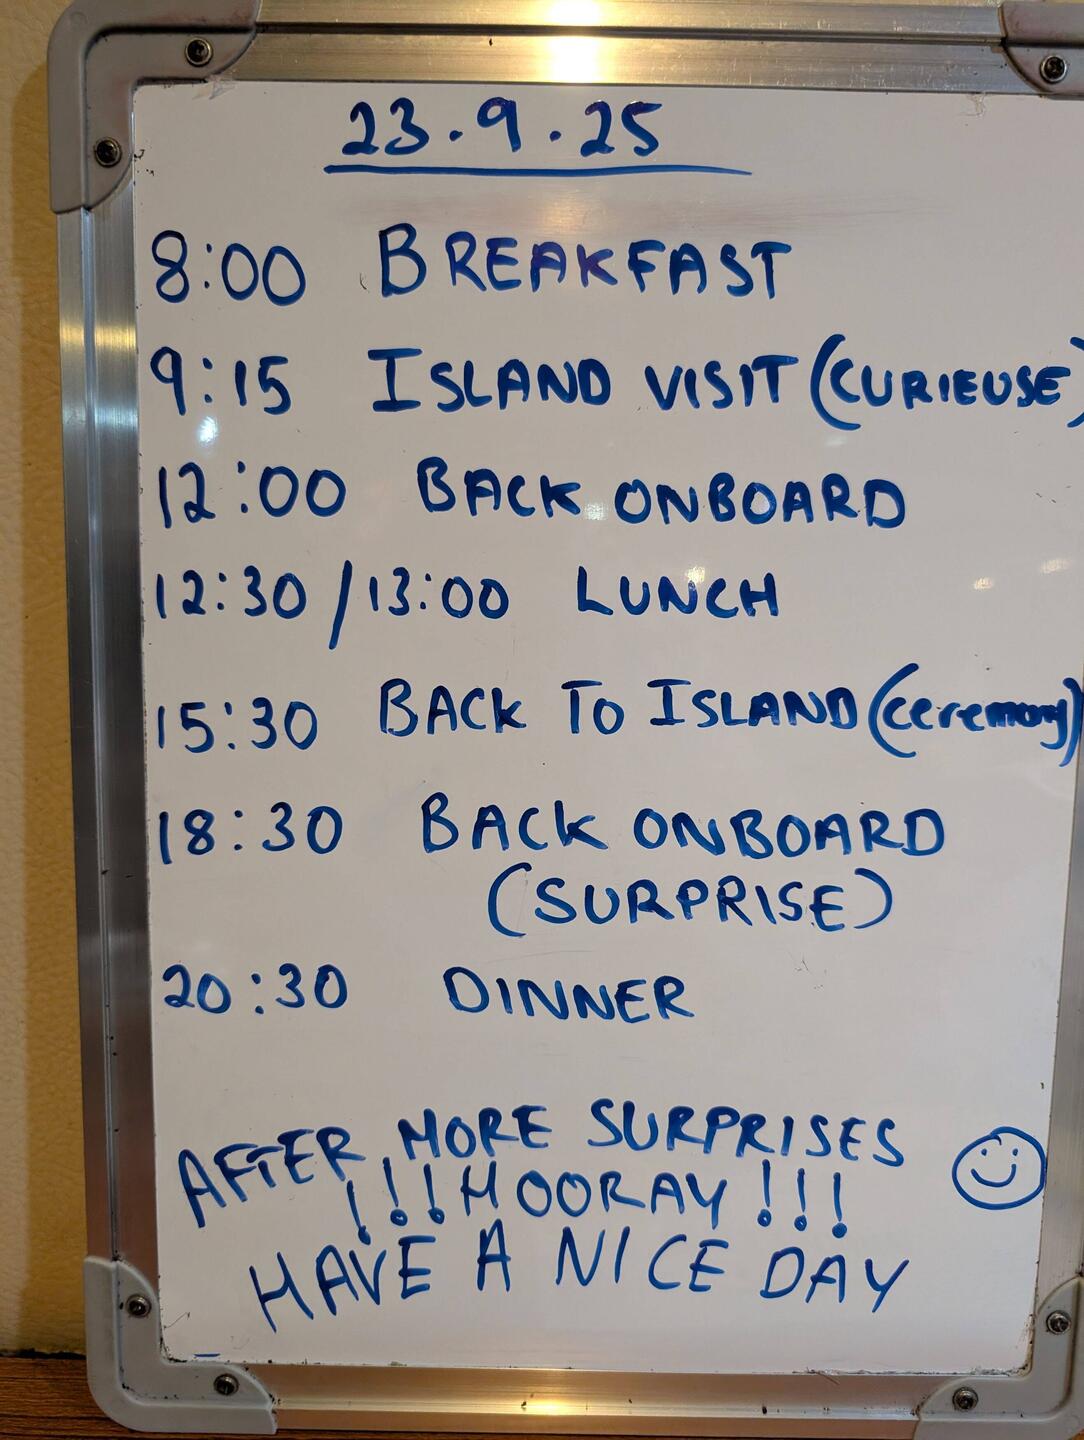 23.9.25
8:00 BREAKFAST
9:15 ISLAND VISIT (CURIEUSE)
12:00 BACK ONBOARD
12:30 / 13:00 LUNCH
15:30 BACK TO ISLAND (ceremony)
18:30 BACK ONBOARD
(SURPRISE)
20:30 DINNER
AFTER MORE SURPRISES
!!! HOORAY !!!
HAVE A NICE DAY